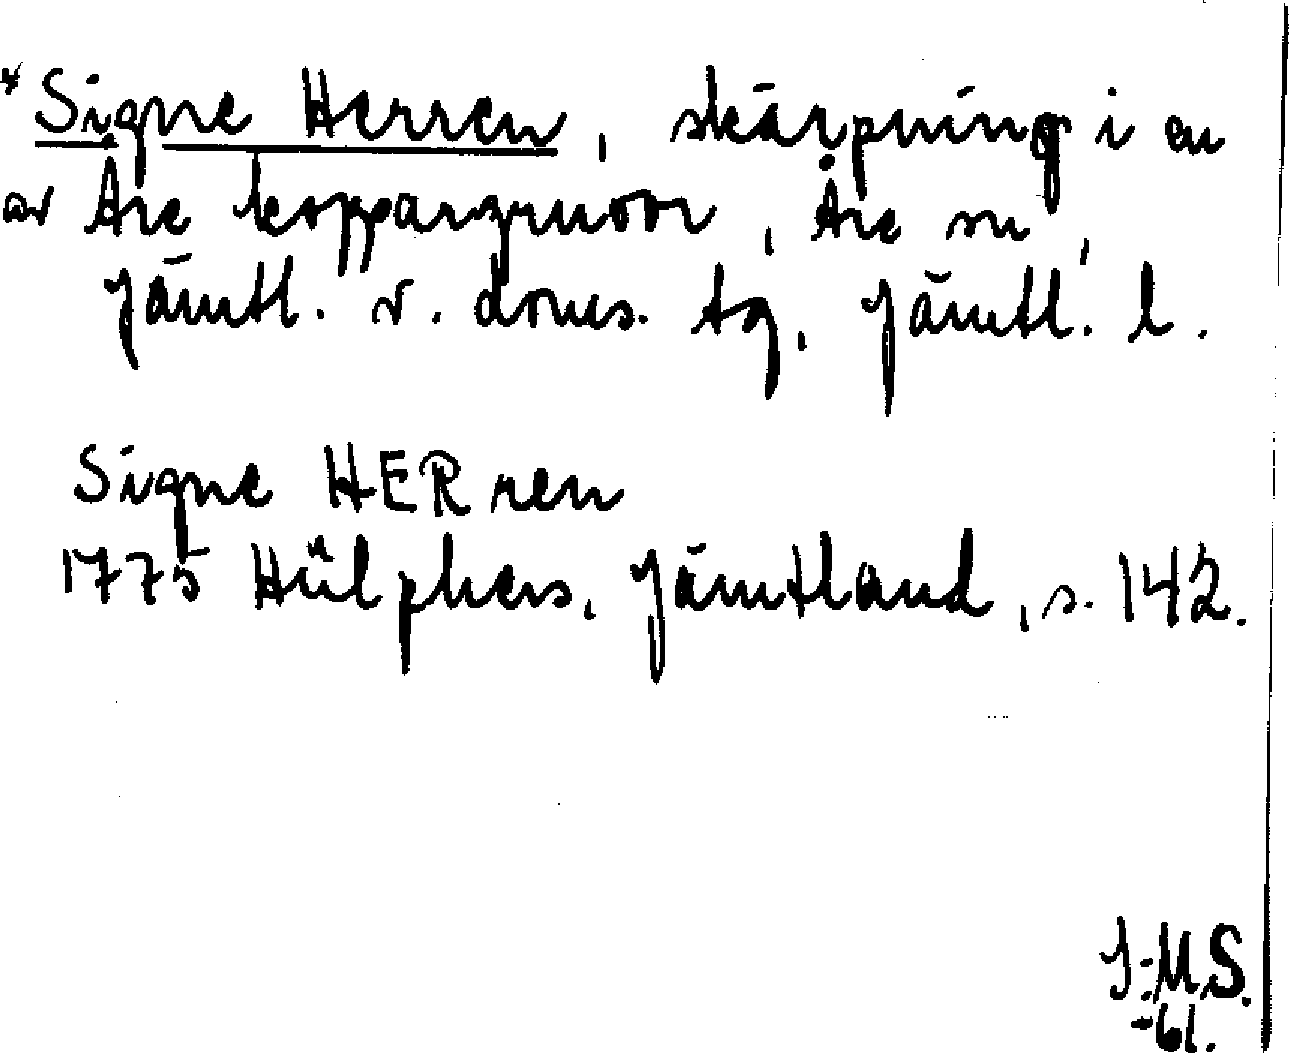 * Signe Herren, skärpning i en
av Åre koppargruvor, Åre sn,
Jämtl. v. doms. tg, Jämtl. l.
Signe HERren
1775 Hülphers, Jämtland, s. 142.
J:M.S.
-61.